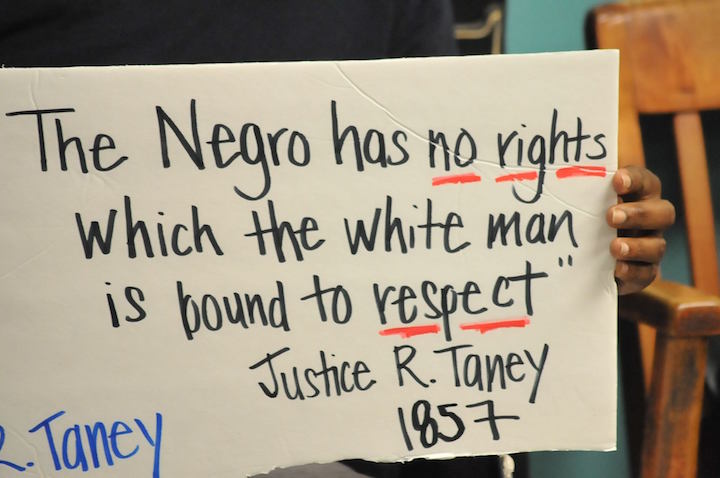 The Negro has no rights
which the white man
is bound to respect"
Justice R. Taney
1857
R. Taney